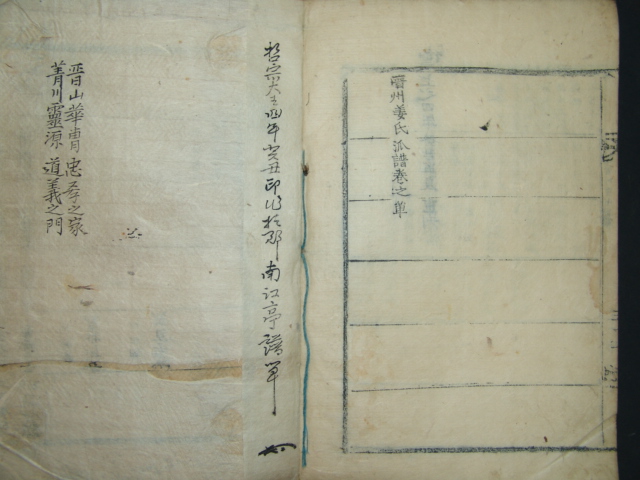 晉州姜氏派譜卷之單
哲宗大王四年癸丑印出於郡南江亭譜單
晋山華胄忠孝之家
菁川靈源道義之門